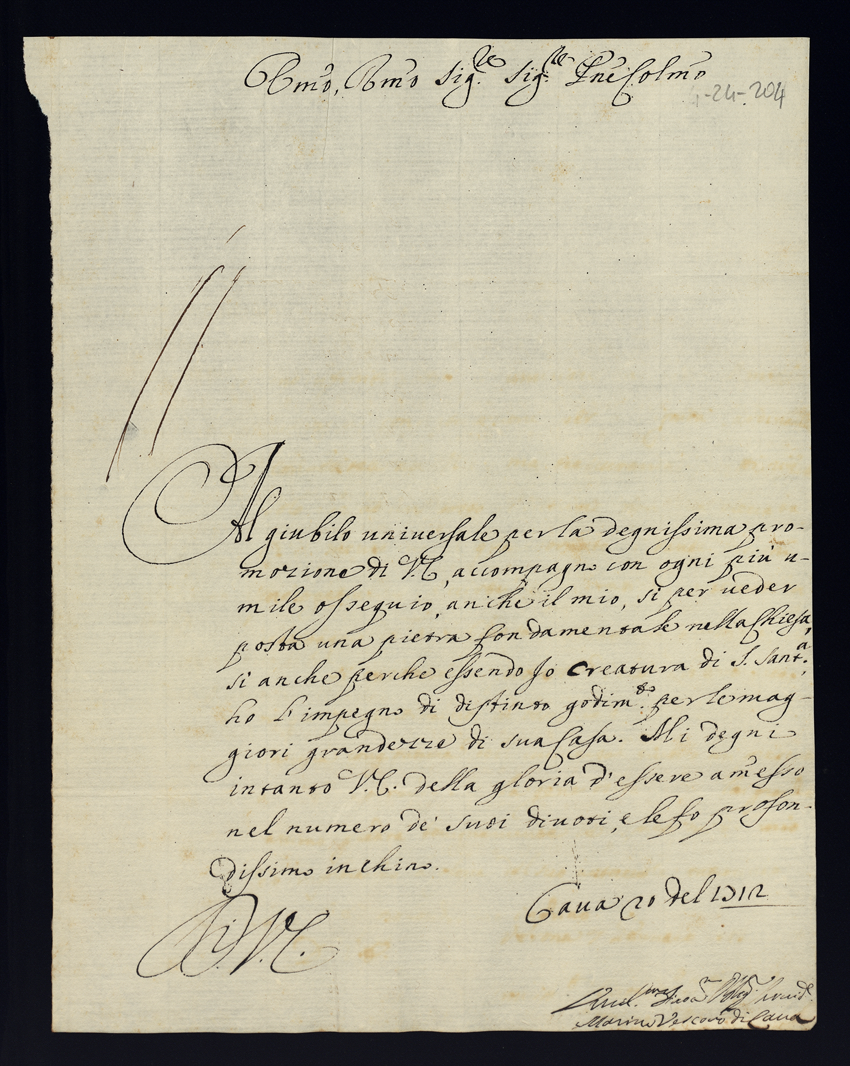 Em̃o, Rm̃o Sig.re Sig.re Pñe Colm̃o
4-24-204
Al giubilo universale per la degnissima pro-
mozione di V.E. accompagno con ogni più u-
mile ossequio, anche il mio, si per veder
posta una pietra fondamentale nella Chiesa,
si anche perche essendo Io Creatura di S. Sant.a,
ho l'impegno di distinto godim.to per le mag-
giori grandezze di sua Casa. Mi degni
intanto V.E. della gloria d'essere am̃esso
nel numero de' suoi divoti, e le fo profon-
dissimo inchino.
Di V.E.
Cava 20 del 1712
Marino Vescovo di Cava